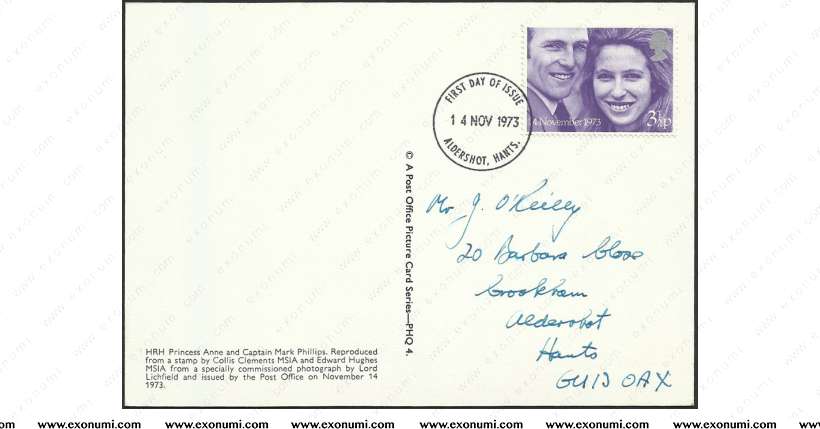 FIRST DAY OF ISSUE
14 NOV 1973
ALDERSHOT, HANTS.
14 November 1973
3½p
© A Post Office Picture Card Series—PHQ 4.
Mr J. O'Reilly
20 Barbara Close
Crookham
Aldershot
Hants
GU13 0AX
HRH Princess Anne and Captain Mark Phillips. Reproduced
from a stamp by Collis Clements MSIA and Edward Hughes
MSIA from a specially commissioned photograph by Lord
Lichfield and issued by the Post Office on November 14
1973.
www.exonumi.com www.exonumi.com www.exonumi.com www.exonumi.com www.exonumi.com www.exonumi.com